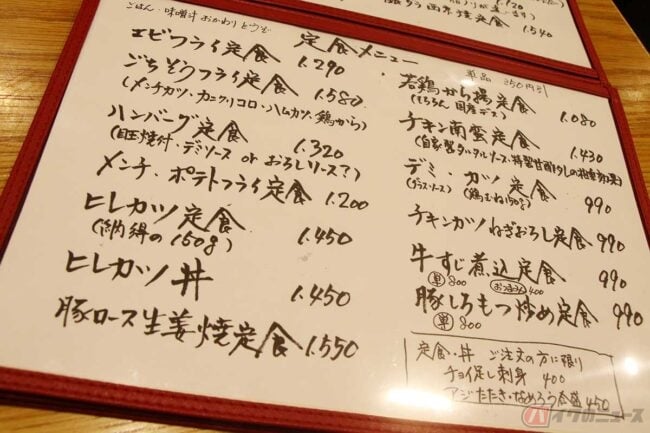 ごはん・味噌汁おかわりどうぞ
1.540
定食メニュー
エビフライ定食 1.290
ごちそうフライ定食 1.580
(メンチカツ・カニクリコロ・ハムカツ・鶏から)
ハンバーグ定食 1.320
(目玉焼付・デミソース or おろしソース?)
メンチ、ポテトフライ定食 1.200
ヒレカツ定食 1.450
(納得の150g)
ヒレカツ丼 1.450
豚ロース生姜焼定食 1.550
単品 250円引
若鶏から揚定食 1.080
(もちろん国産デス)
チキン南蛮定食 1.430
デミ・カツ定食 990
(鶏むね150g)
チキンカツねぎおろし定食 990
牛すじ煮込定食 990
単 800 おつまみ 400
豚しろもつ炒め定食 990
単 800
定食・丼 ご注文の方に限り
チョイ足し刺身 400
アジたたき・なめろう各盛 450
バイクのニュース